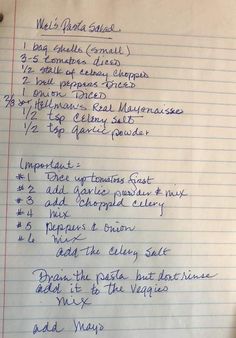 Mel's Pasta Salad
1 bag shells (small)
3-5 tomatoes diced
1/2 stalk of celery chopped
2 bell peppers Diced
1 onion Diced
2/3 Hellman's Real Mayonaisse
1/2 tsp Celery salt
1/2 tsp garlic powder
Important:
#1 Dice up tomatoes first
#2 add garlic powder & mix
#3 add chopped celery
#4 mix
#5 Peppers & onion
#6 mix
add the celery salt
Drain the pasta but dont rinse
add it to the veggies
mix
add Mayo